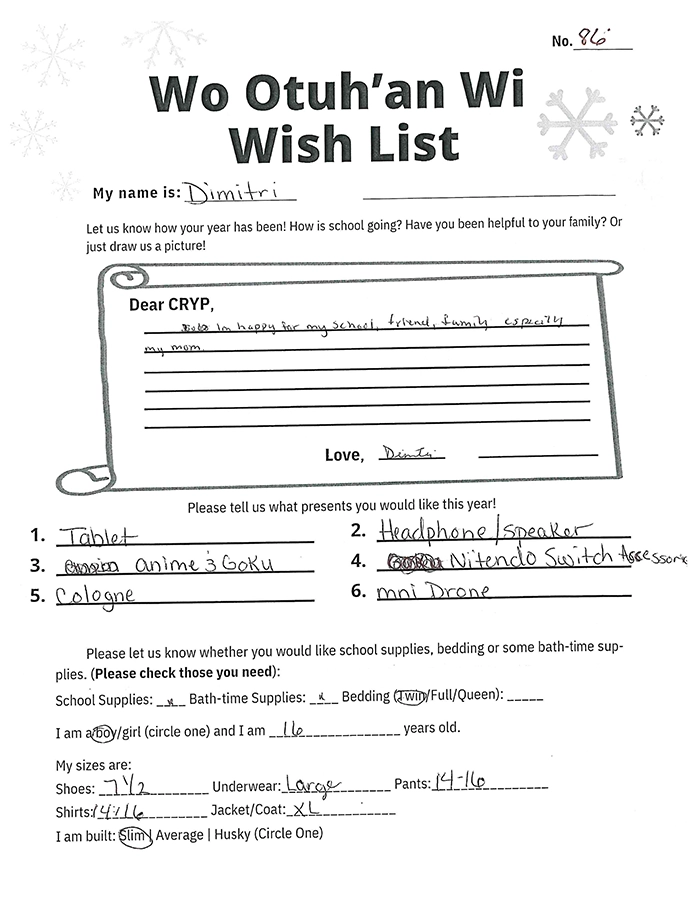 No. 86
Wo Otuh'an Wi
Wish List
My name is: Dimitri
Let us know how your year has been! How is school going? Have you been helpful to your family? Or
just draw us a picture!
Dear CRYP,
Im happy for my school, friend, family especilly
my mom.
Love, Dimitri
Please tell us what presents you would like this year!
1. Tablet
2. Headphone/speaker
3. anime & Goku
4. Nitendo Switch Assessorie
5. Cologne
6. mni Drone
Please let us know whether you would like school supplies, bedding or some bath-time sup-
plies. (Please check those you need):
School Supplies: __x__ Bath-time Supplies: __x__ Bedding (Twin/Full/Queen): _____
I am a boy/girl (circle one) and I am 16 years old.
My sizes are:
Shoes: 7 1/2 Underwear: Large Pants: 14-16
Shirts: 14-16 Jacket/Coat: XL
I am built: Slim | Average | Husky (Circle One)